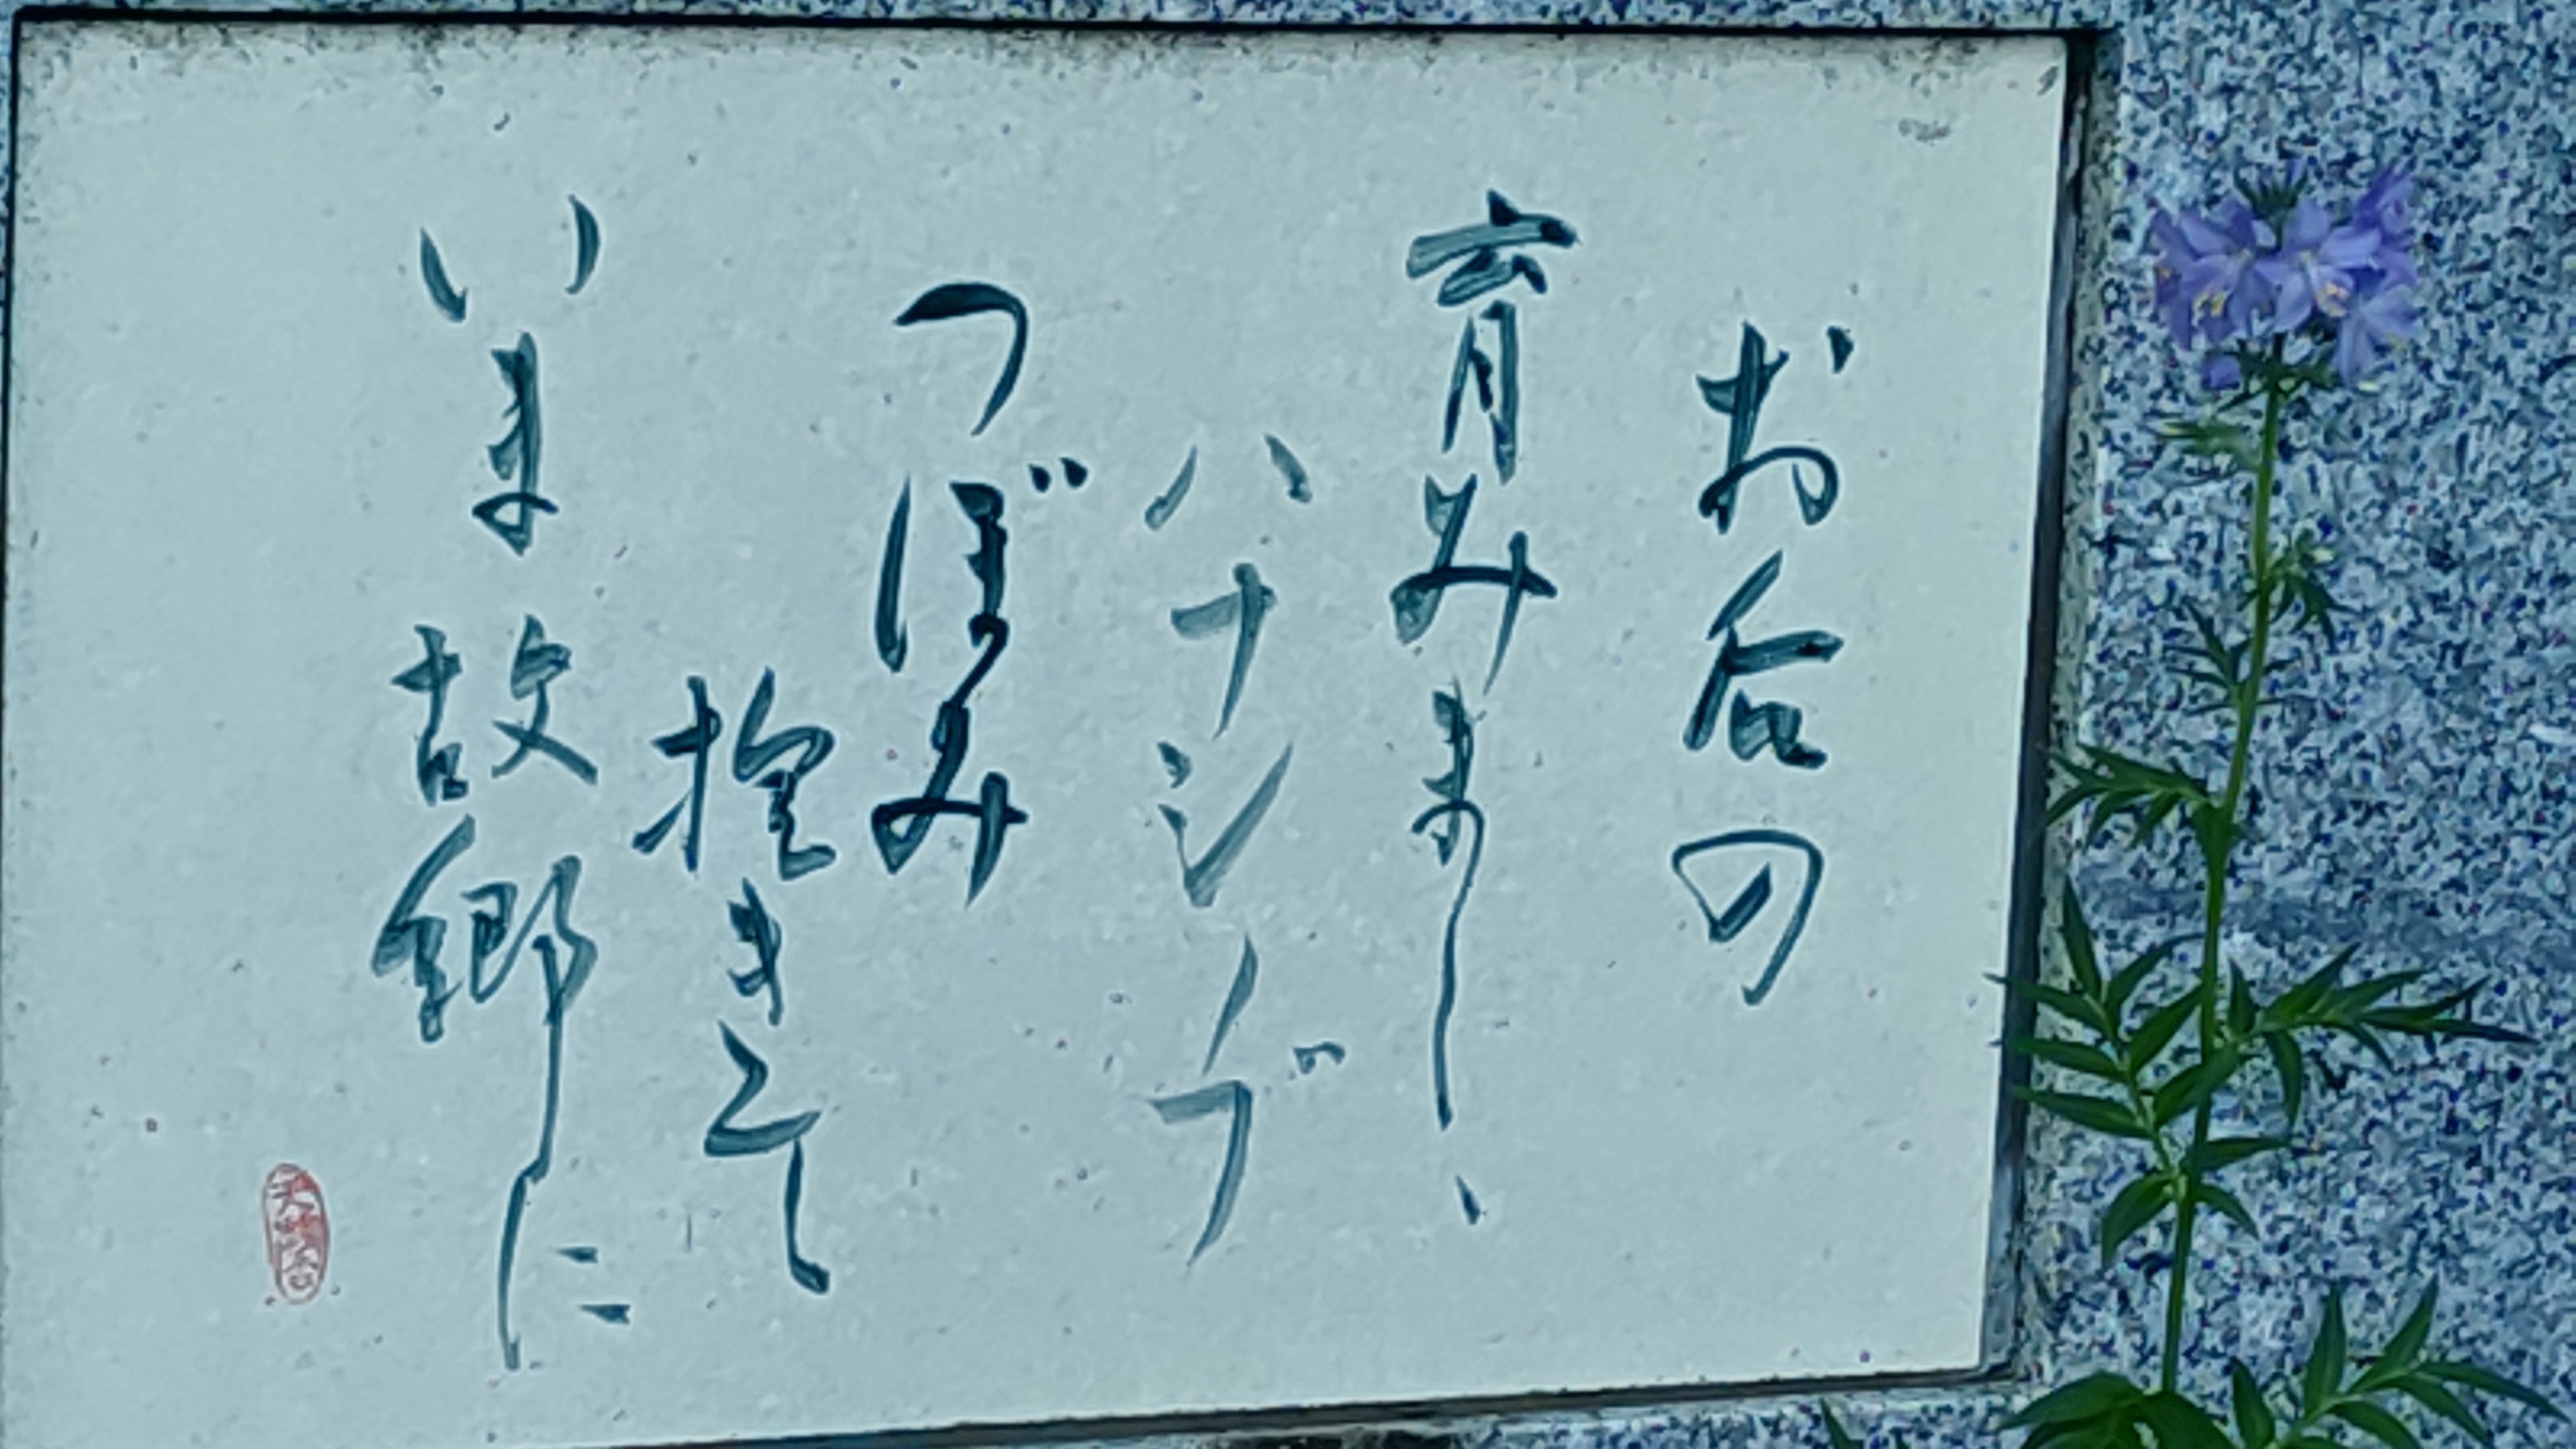 お后の
育みましゝ
ハナシノブ
つぼみ
抱きて
いま故郷に